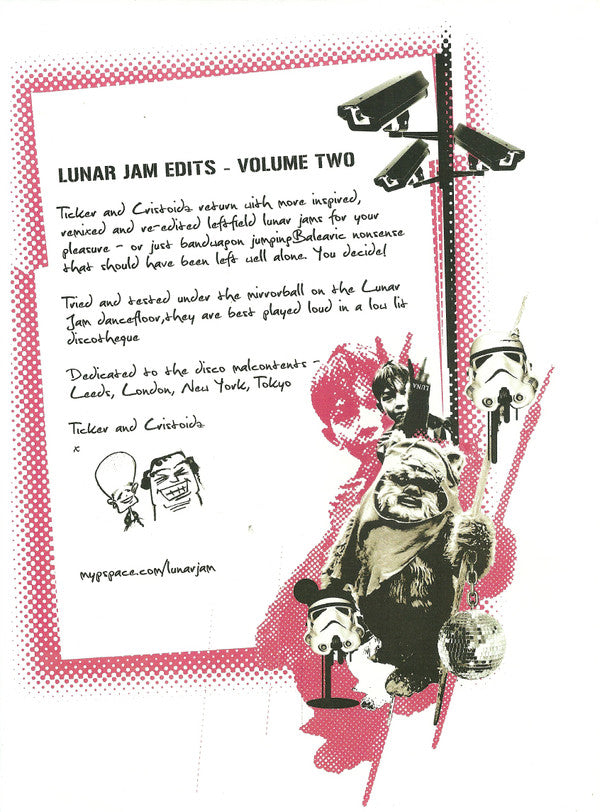 LUNAR JAM EDITS - VOLUME TWO
Ticker and Cristoids return with more inspired,
remixed and re-edited leftfield lunar jams for your
pleasure - or just bandwagon jumpingBalearic nonsense
that should have been left well alone. You decide!
Tried and tested under the mirrorball on the Lunar
Jam dancefloor,they are best played loud in a low lit
discotheque
Dedicated to the disco malcontents -
Leeds, London, New York, Tokyo
Ticker and Cristoids
x
LUNA
mypspace.com/lunarjam